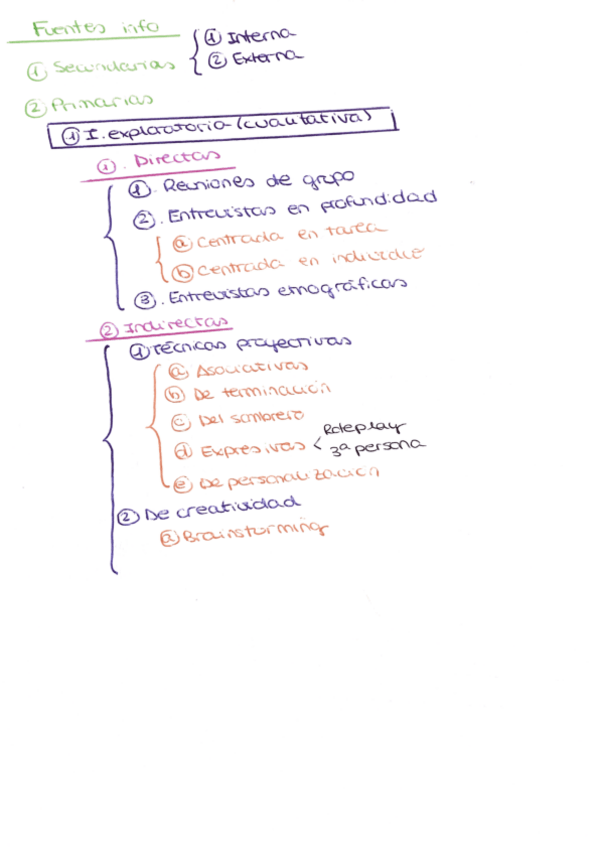 Fuentes info
① Secundarias { ① Interna
② Externa
② Primarias
① I. exploratoria (cualitativa)
① . Directas
① . Reuniones de grupo
② . Entrevistas en profundidad
ⓐ Centrada en tarea
ⓑ Centrada en individuo
③ . Entrevistas etnográficas
② Indirectas
① Técnicas proyectivas
ⓐ Asociativas
ⓑ De terminación
ⓒ Del sombrero
ⓓ Expresivas < Roleplay
3ª persona
ⓔ De personalización
② De creatividad
ⓐ Brainstorming